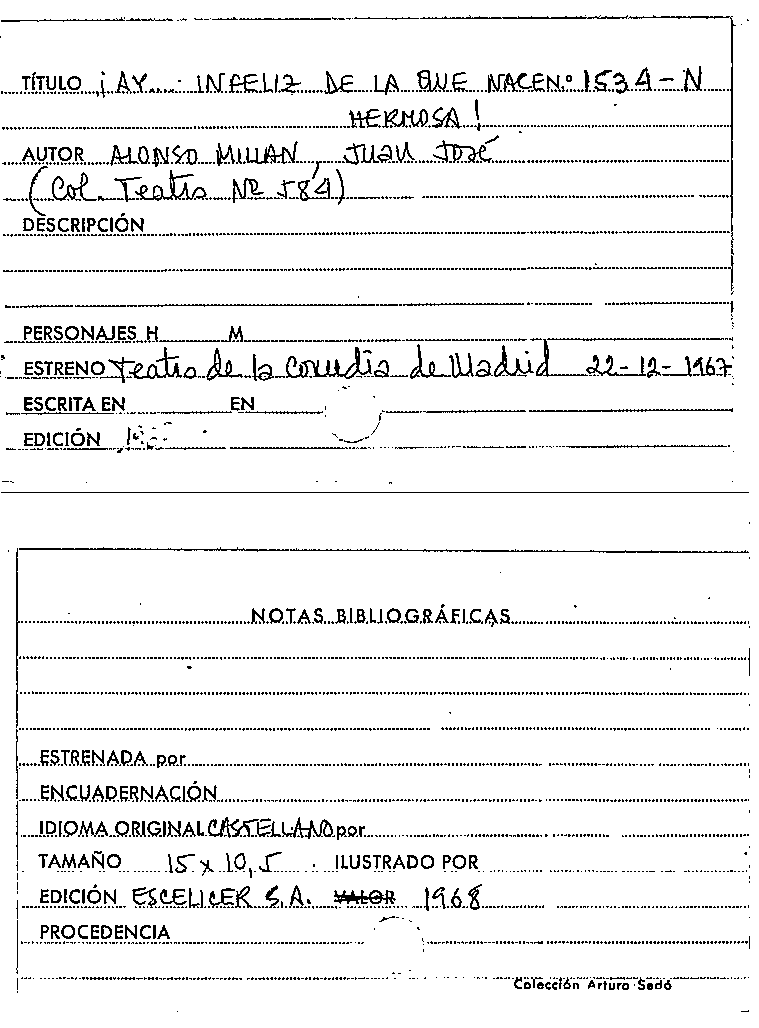 TÍTULO ¡AY.... INFELIZ DE LA QUE NACE N.º 1534-N
HERMOSA!
AUTOR ALONSO MILLAN, JUAN JOSÉ
(Col. Teatro Nº 584)
DESCRIPCIÓN
PERSONAJES H M
ESTRENO Teatro de la comedia de Madrid 22-12-1967
ESCRITA EN EN
EDICIÓN
NOTAS BIBLIOGRÁFICAS
ESTRENADA por
ENCUADERNACIÓN
IDIOMA ORIGINAL CASTELLANO por
TAMAÑO 15 x 10,5 ILUSTRADO POR
EDICIÓN ESCELICER S.A. VALOR 1968
PROCEDENCIA
Colección Arturo Sedó